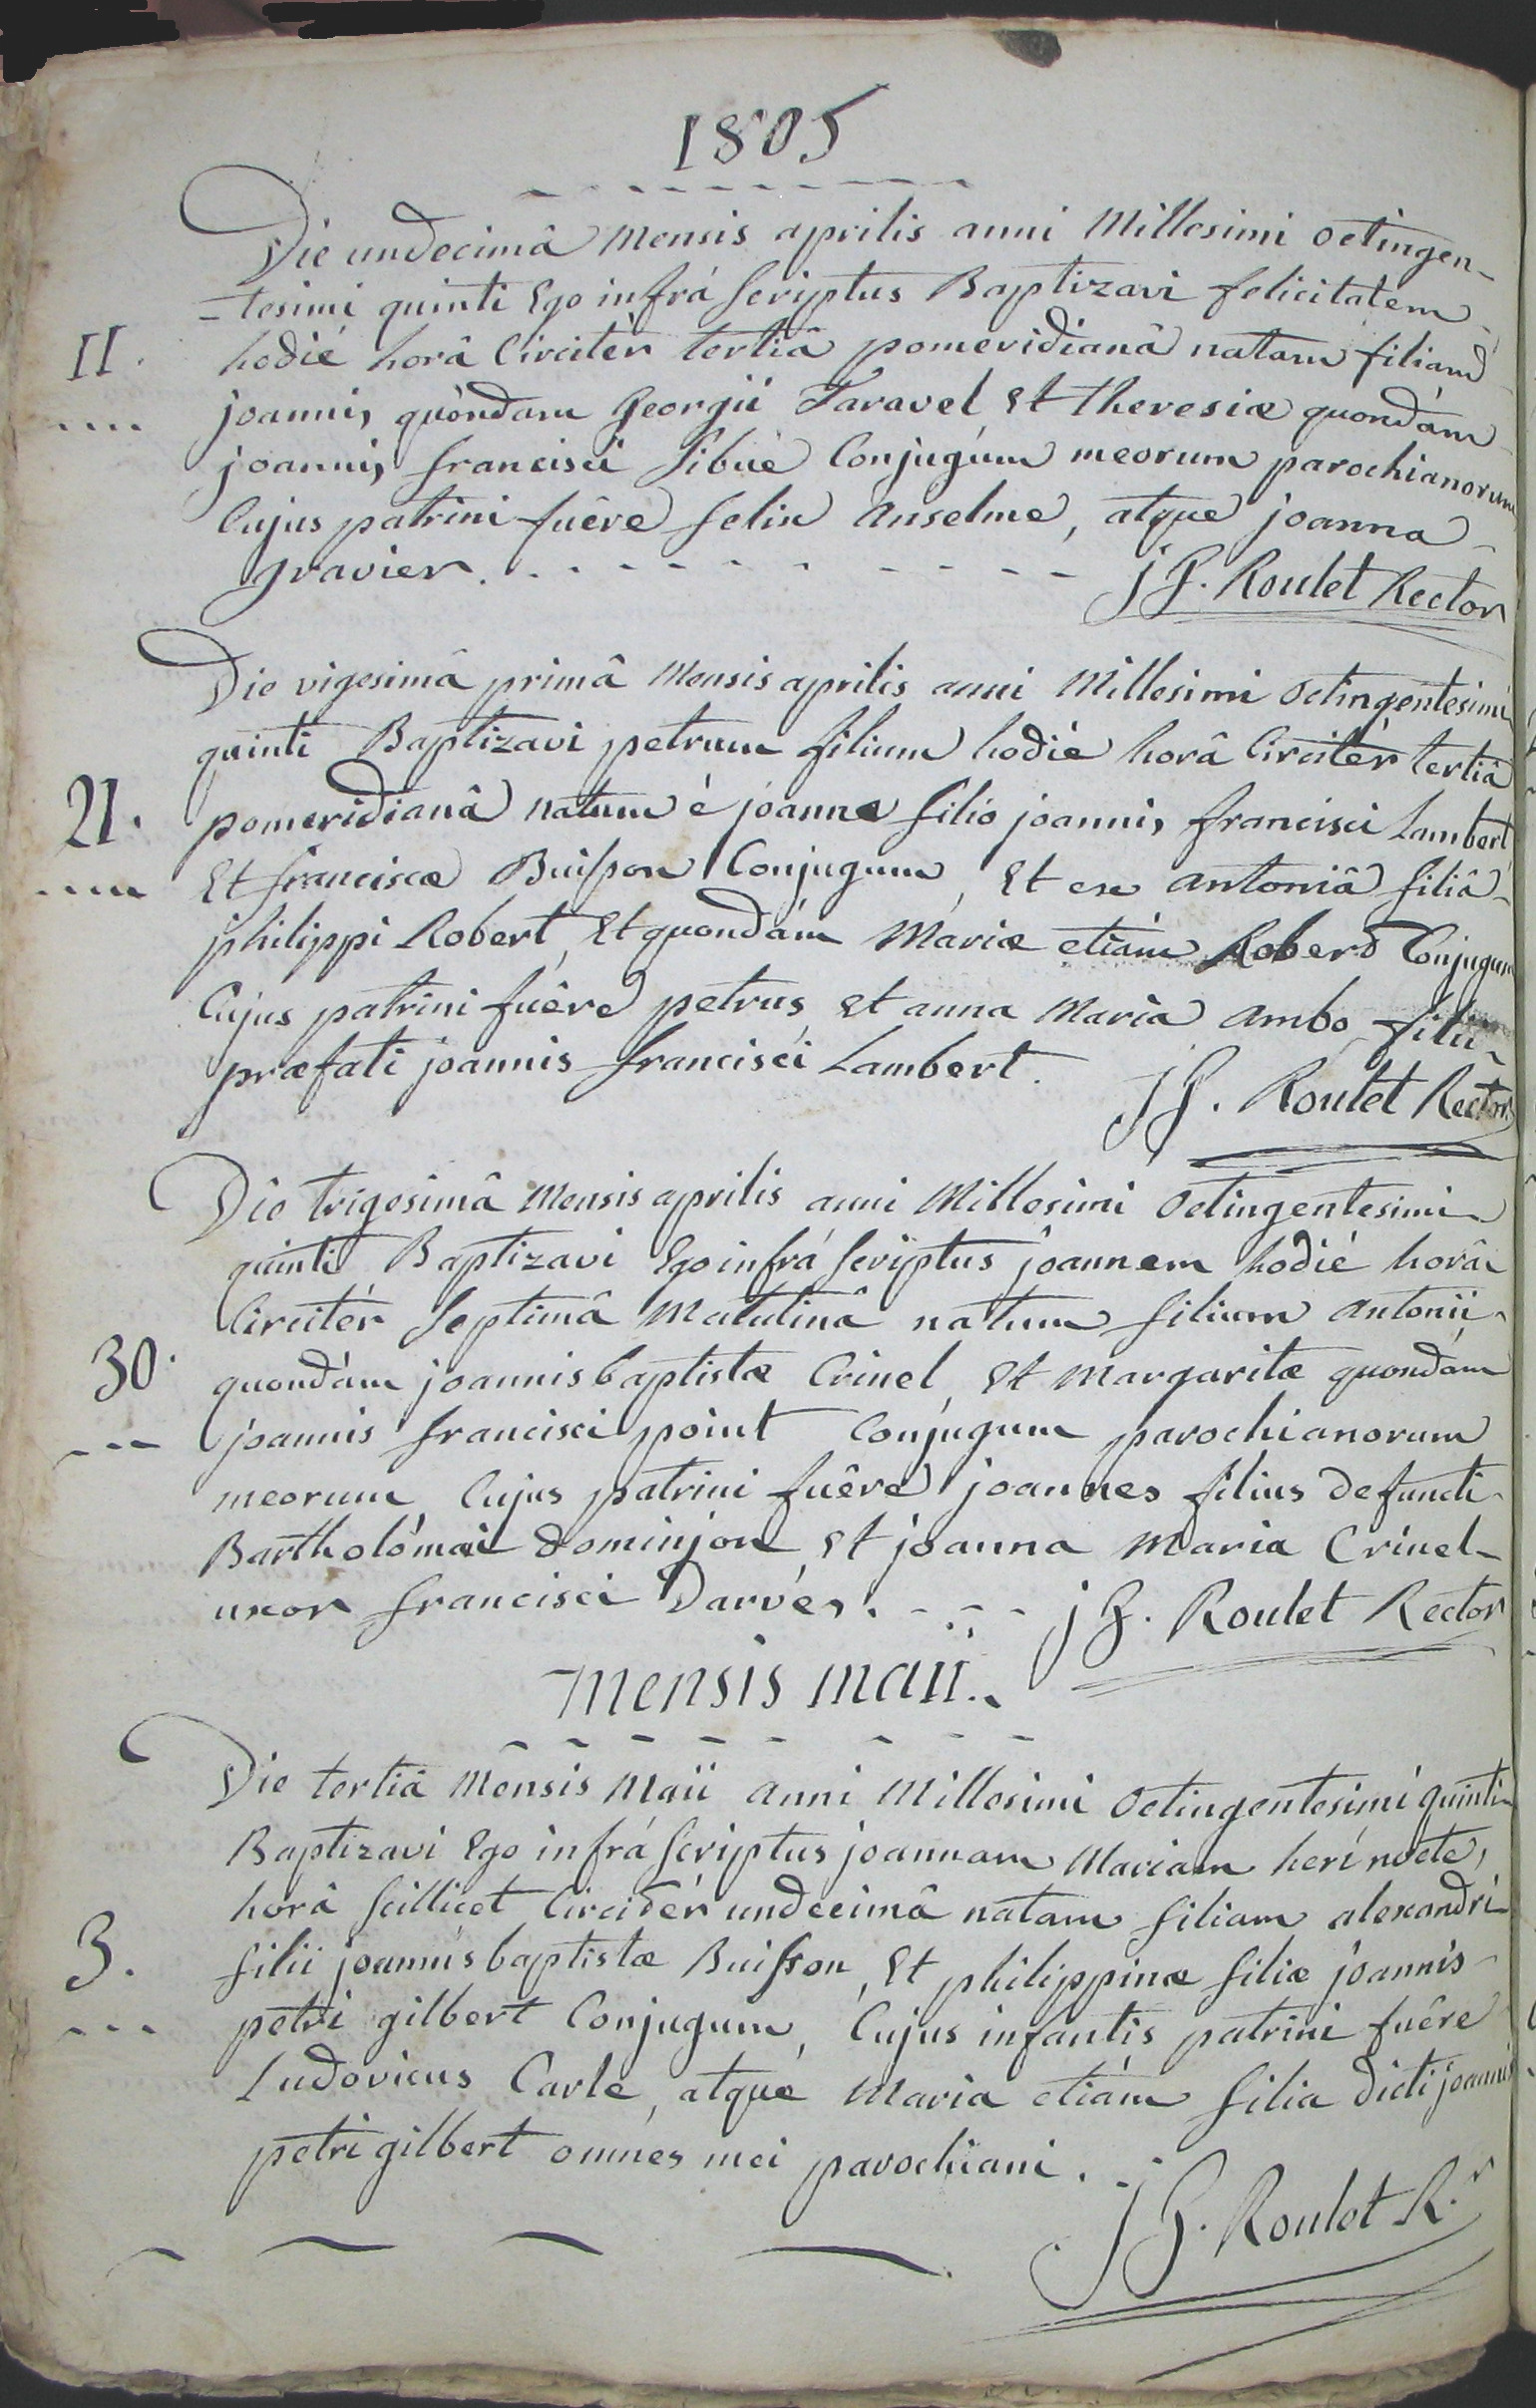 1805
Die undecimâ mensis aprilis anni Millesimi octingen-
-tesimi quinti Ego infrá scriptus Baptizavi felicitatem
II. hodié horâ Circitèr tertiâ pomeridianâ natam filiam
joannis quòndam Georgii Taravel Et theresiæ quondám
joannis francisci Sibüé Conjugúm meorum parochianorum
Cujus patrini fuêre felix Anselme, atque joanna
gravier. j f. Roulet Rector
Die vigesimâ primâ Mensis aprilis anni Millesimi octingentesimi
quinti Baptizavi petrum filium hodié horâ Circitér tertiâ
21. pomeridianâ natum é joanne filio joannis francisci Lambert
Et franciscæ Buisson Conjugum, Et ex antoniâ filiâ
philippi Robert, Et quondám Mariæ etiám Roberd Conjugum
Cujus patrini fuêre petrus et anna Maria ambo filii
præfati joannis francisci Lambert.
j f. Roulet Rector
Die trigesimâ Mensis aprilis anni Millesimi octingentesimi
quinti Baptizavi Ego infrá scriptus joannem hodié horâ
Circitér Septimâ Matutinâ natum filium antonii
30. quondám joannis baptistæ Crinel Et Margaritæ quondám
joannis francisci point Conjugum parochianorum
meorum Cujus patrini fuêre joannes filius defuncti
Bartholómæi dominjon Et joanna Maria Crinel
uxor francisci Darvés. j f. Roulet Rector
mensis maii.
Die tertiâ Mensis Maii anni Millesimi octingentesimi quinti
Baptizavi Ego infrá scriptus joannam Mariam herí nocte,
horâ scillicet Circitér undecimâ natam filiam alexandri
3. filii joannis baptistæ Buisson, Et philippinæ filiæ joannis
petri gilbert Conjugum, Cujus infantis patrini fuêre
Ludovicus Carle, atqué Maria etiám filia dicti joannis
petri gilbert omnes mei parochiani.
j f. Roulet R.r